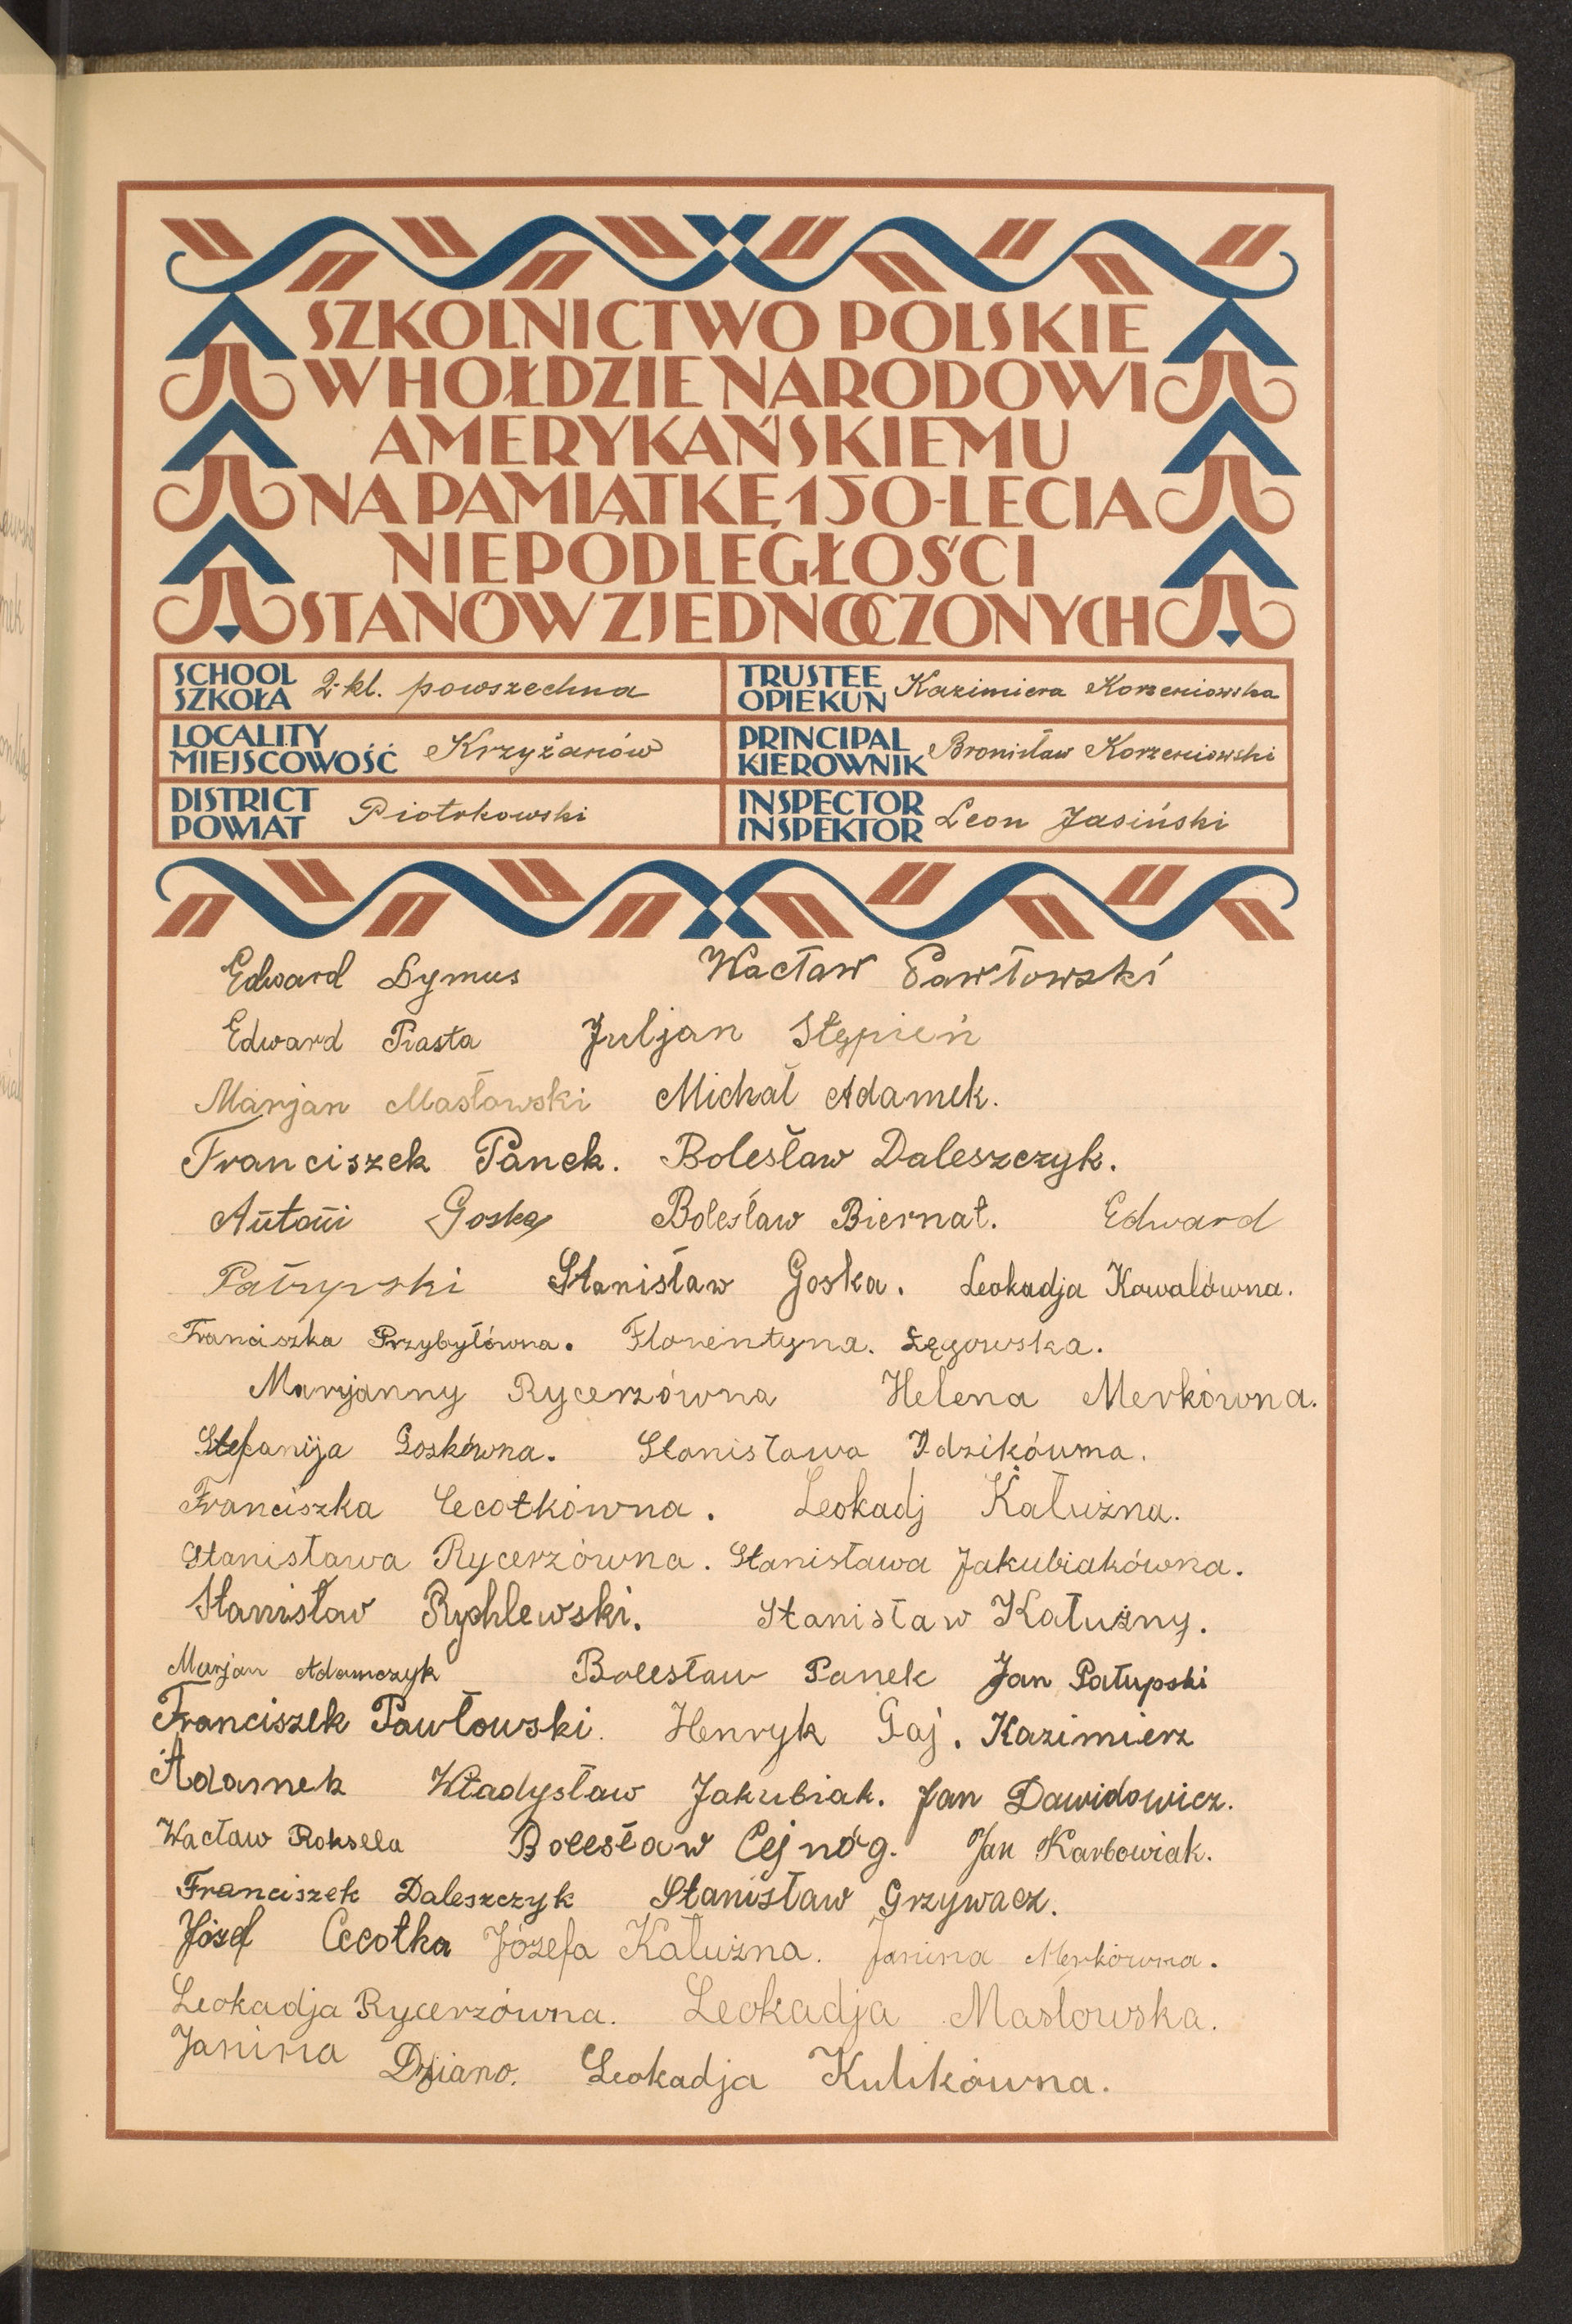 SZKOLNICTWO POLSKIE
W HOŁDZIE NARODOWI
AMERYKAŃSKIEMU
NA PAMIĄTKĘ 150-LECIA
NIEPODLEGŁOŚCI
STANÓW ZJEDNOCZONYCH
SCHOOL
SZKOŁA 2-kl. powszechna
TRUSTEE
OPIEKUN Kazimiera Korzeniowska
LOCALITY
MIEJSCOWOŚĆ Krzyżanów
PRINCIPAL
KIEROWNIK Bronisław Korzeniowski
DISTRICT
POWIAT Piotrkowski
INSPECTOR
INSPEKTOR Leon Jasiński
Edward Dymus Wacław Pawłowski
Edward Piasta Juljan Stępień
Marjan Masłowski Michał Adamek.
Franciszek Panek. Bolesław Daleszczyk.
Antoni Goska Bolesław Biernat. Edward
Patrypski Stanisław Goska. Leokadja Kowalówna.
Franciszka Przybyłówna. Florentyna. Łęgowska.
Maryanny Rycerzówna Helena Merkówna.
Stefanija Goskówna. Stanisława Idzikówna.
Franciszka Cecotkówna. Leokadj Kałużna.
Stanisława Rycerzówna. Stanisława Jakubiakówna.
Stanisław Rychlewski. Stanisław Kałużny.
Marjan Adamczyk Bolesław Panek Jan Patupski
Franciszek Pawłowski. Henryk Gaj. Kazimierz
Adamek Władysław Jakubiak. Jan Dawidowicz.
Wacław Roksela Bolesław Cejnóg. Jan Karbowiak.
Franciszek Daleszczyk Stanisław Grzywacz.
Józef Cecotka Józefa Kałużna. Janina Merkówna.
Leokadja Rycerzówna. Leokadja Masłowska.
Janina Leokadja Kulikówna.